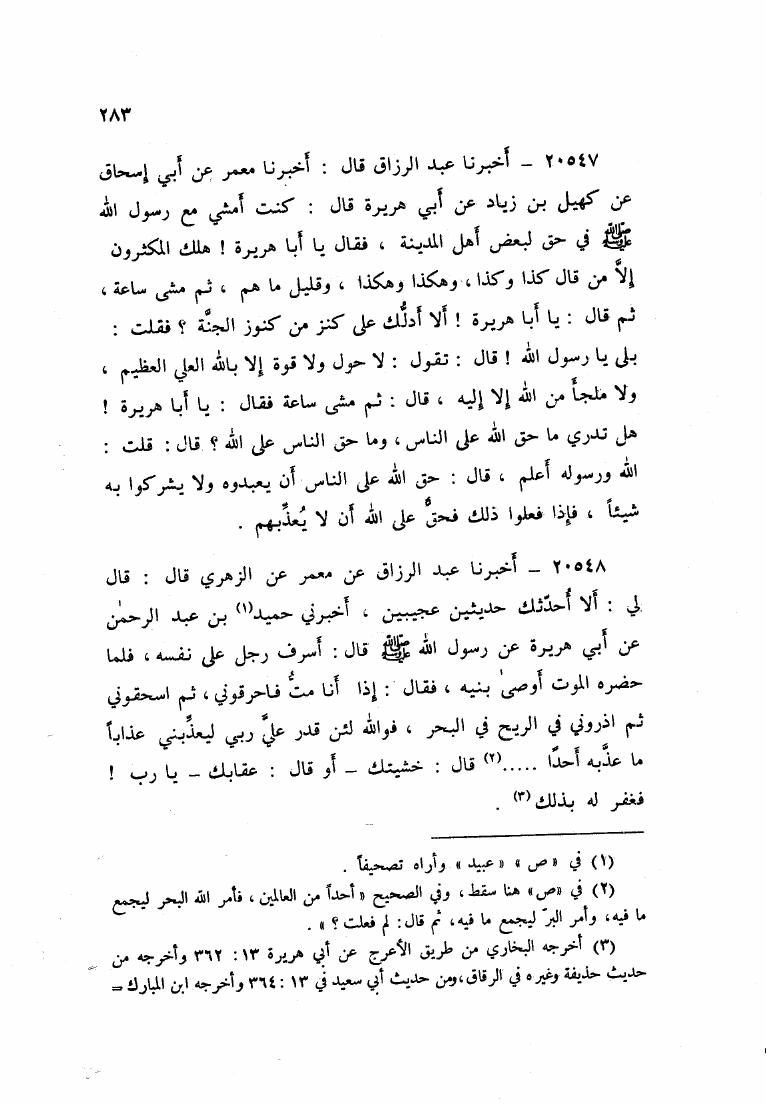 ٢٨٣
٢٠٥٤٧ – أخبرنا عبد الرزاق قال : أخبرنا معمر عن أبي إسحاق
عن كهيل بن زياد عن أبي هريرة قال : كنت أمشي مع رسول الله
ﷺ في حق لبعض أهل المدينة ، فقال يا أبا هريرة ! هلك المكثرون
إلاَّ من قال كذا وكذا ، وهكذا وهكذا ، وقليل ما هم ، ثم مشى ساعة ،
ثم قال : يا أبا هريرة ! ألا أدلُّك على كنز من كنوز الجنَّة ؟ فقلت :
بلى يا رسول الله ! قال : تقول : لا حول ولا قوة إلا بالله العلي العظيم ،
ولا ملجأ من الله إلا إليه ، قال : ثم مشى ساعة فقال : يا أبا هريرة !
هل تدري ما حق الله على الناس ، وما حق الناس على الله ؟ قال : قلت :
الله ورسوله أعلم ، قال : حق الله على الناس أن يعبدوه ولا يشركوا به
شيئاً ، فإذا فعلوا ذلك فحقٌّ على الله أن لا يُعذِّبهم .
٢٠٥٤٨ – أخبرنا عبد الرزاق عن معمر عن الزهري قال : قال
لي : ألا أُحدّثك حديثين عجيبين ، أخبرني حميد(١) بن عبد الرحمٰن
عن أبي هريرة عن رسول الله ﷺ قال : أسرف رجل على نفسه ، فلما
حضره الموت أوصىٰ بنيه ، فقال : إذا أنا متُّ فاحرقوني ، ثم اسحقوني
ثم اذروني في الريح في البحر ، فوالله لئن قدر عليَّ ربي ليعذِّبني عذاباً
ما عذَّبه أحدًا .....(٢) قال : خشيتك – أو قال : عقابك – يا رب !
فغفر له بذلك(٣) .
(١) في «ص» «عبيد» وأراه تصحيفاً .
(٢) في «ص» هنا سقط ، وفي الصحيح «أحداً من العالمين ، فأمر الله البحر ليجمع
ما فيه ، وأمر البرّ ليجمع ما فيه ، ثم قال : لم فعلت ؟ » .
(٣) أخرجه البخاري من طريق الأعرج عن أبي هريرة ١٣ : ٣٦٢ وأخرجه من
حديث حذيفة وغيره في الرقاق ، ومن حديث أبي سعيد في ١٣ : ٣٦٤ وأخرجه ابن المبارك =